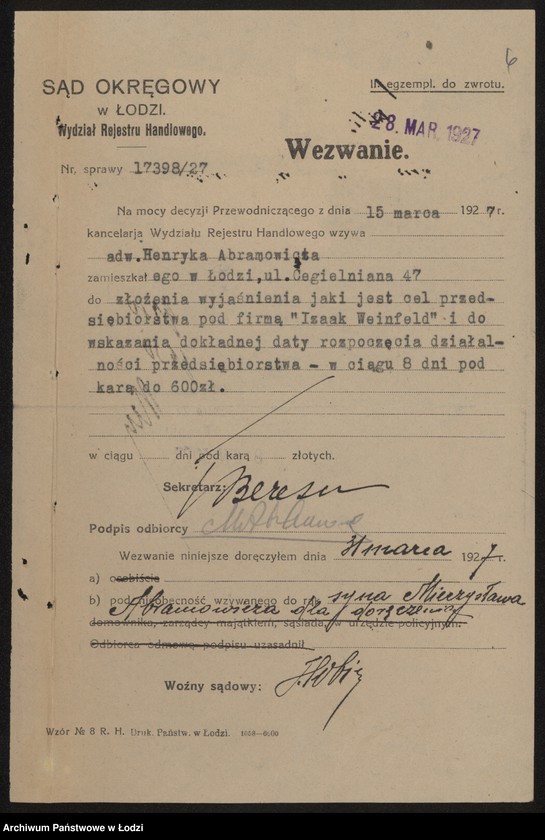 6
SĄD OKRĘGOWY
w ŁODZI.
Wydział Rejestru Handlowego.
II egzempl. do zwrotu.
28. MAR. 1927
Wezwanie.
Nr. sprawy 17398/27
Na mocy decyzji Przewodniczącego z dnia 15 marca 1927r.
kancelarja Wydziału Rejestru Handlowego wzywa
adw. Henryka Abramowicza
zamieszkałego w Łodzi, ul. Cegielniana 47
do złożenia wyjaśnienia jaki jest cel przed-
siębiorstwa pod firmą "Izaak Weinfeld" i do
wskazania dokładnej daty rozpoczęcia działal-
ności przedsiębiorstwa - w ciągu 8 dni pod
karą do 600zł.
w ciągu dni pod karą złotych.
Sekretarz:
Podpis odbiorcy
Wezwanie niniejsze doręczyłem dnia marca 1927r.
a) osobiście
b) pod nieobecność wzywanego do rąk syna Mieczysława
Abramowicza dla doręczenia
domownika, zarządcy majątkiem, sąsiada, w urzędzie policyjnym.
Odbiorca odmowę podpisu uzasadnił
Woźny sądowy:
Wzór № 8 R. H. Druk. Państw. w Łodzi.
Archiwum Państwowe w Łodzi